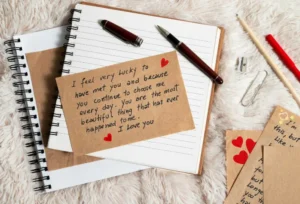 I feel very lucky to
have met you and because
you continue to choose me
every day. You are the most
beautiful thing that has ever
happened to me.
I love you